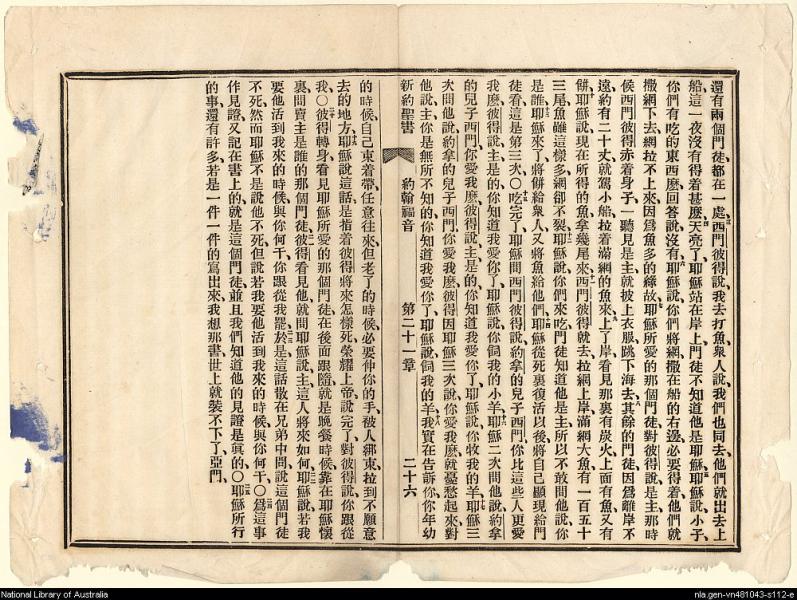 還有兩個門徒都在一處、西門彼得說、我去打魚、衆人說、我們也同去、他們就出去上
船、這一夜沒有得着甚麼、天亮了、耶穌站在岸上、門徒不知道他是耶穌、耶穌說、小子、
你們有吃的東西麼、回答說、沒有、耶穌說、你們將網撒在船的右邊、必要得着、他們就
撒網下去、網拉不上來、因爲魚多的緣故、耶穌所愛的那個門徒對彼得說、是主、那時
候西門彼得赤着身子、一聽見是主、就披上衣服、跳下海去、其餘的門徒、因爲離岸不
遠、約有二十丈、就駕小船、拉着滿網的魚來、上了岸、看見那裏有炭火、上面有魚、又有
餅、耶穌說、現在所得的魚、拿幾尾來、西門彼得就去拉網上岸、滿網大魚、有一百五十
三尾、魚雖這樣多、網卻不裂、耶穌說、你們來吃、門徒知道他是主、所以不敢問他說、你
是誰、耶穌來了、將餅給衆人、又將魚給他們、耶穌從死裏復活以後、將自己顯現給門
徒看、這是第三次、〇吃完了、耶穌問西門彼得說、約拿的兒子西門、你比這些人更愛
我麼、彼得說、主是的、你知道我愛你了、耶穌說、你飼我的小羊、耶穌二次問他說、約拿
的兒子西門、你愛我麼、彼得說、主是的、你知道我愛你了、耶穌說、你牧我的羊、耶穌三
次問他說、約拿的兒子西門、你愛我麼、彼得因耶穌三次說、你愛我麼、就憂愁起來、對
他說、主你是無所不知的、你知道我愛你了、耶穌說、飼我的羊、我實在告訴你、你年幼
新約聖書 約翰福音 第二十一章 二十六
的時候、自己束着帶、任意往來、但老了的時候、必要伸你的手、被人綁束、拉到不願意
去的地方、耶穌說這話、是指着彼得將來怎樣死、榮耀上帝、說完了、對彼得說、你跟從
我、〇彼得轉身看見耶穌所愛的那個門徒、在後面跟隨、就是晚餐時候、靠在耶穌懷
裏、問賣主是誰的那個門徒、彼得看見他、就問耶穌說、主、這人將來如何、耶穌說、若我
要他活到我來的時候、與你何干、你跟從我罷、於是這話散在兄弟中間、說這個門徒
不死、然而耶穌不是說他不死、但說若我要他活到我來的時候、與你何干、〇爲這事
作見證、又記在書上的、就是這個門徒、並且我們知道他的見證是眞的、〇耶穌所行
的事、還有許多、若是一件一件的寫出來、我想那書世上就裝不下了、亞門、
National Library of Australia
nla.gen-vn481043-s112-e